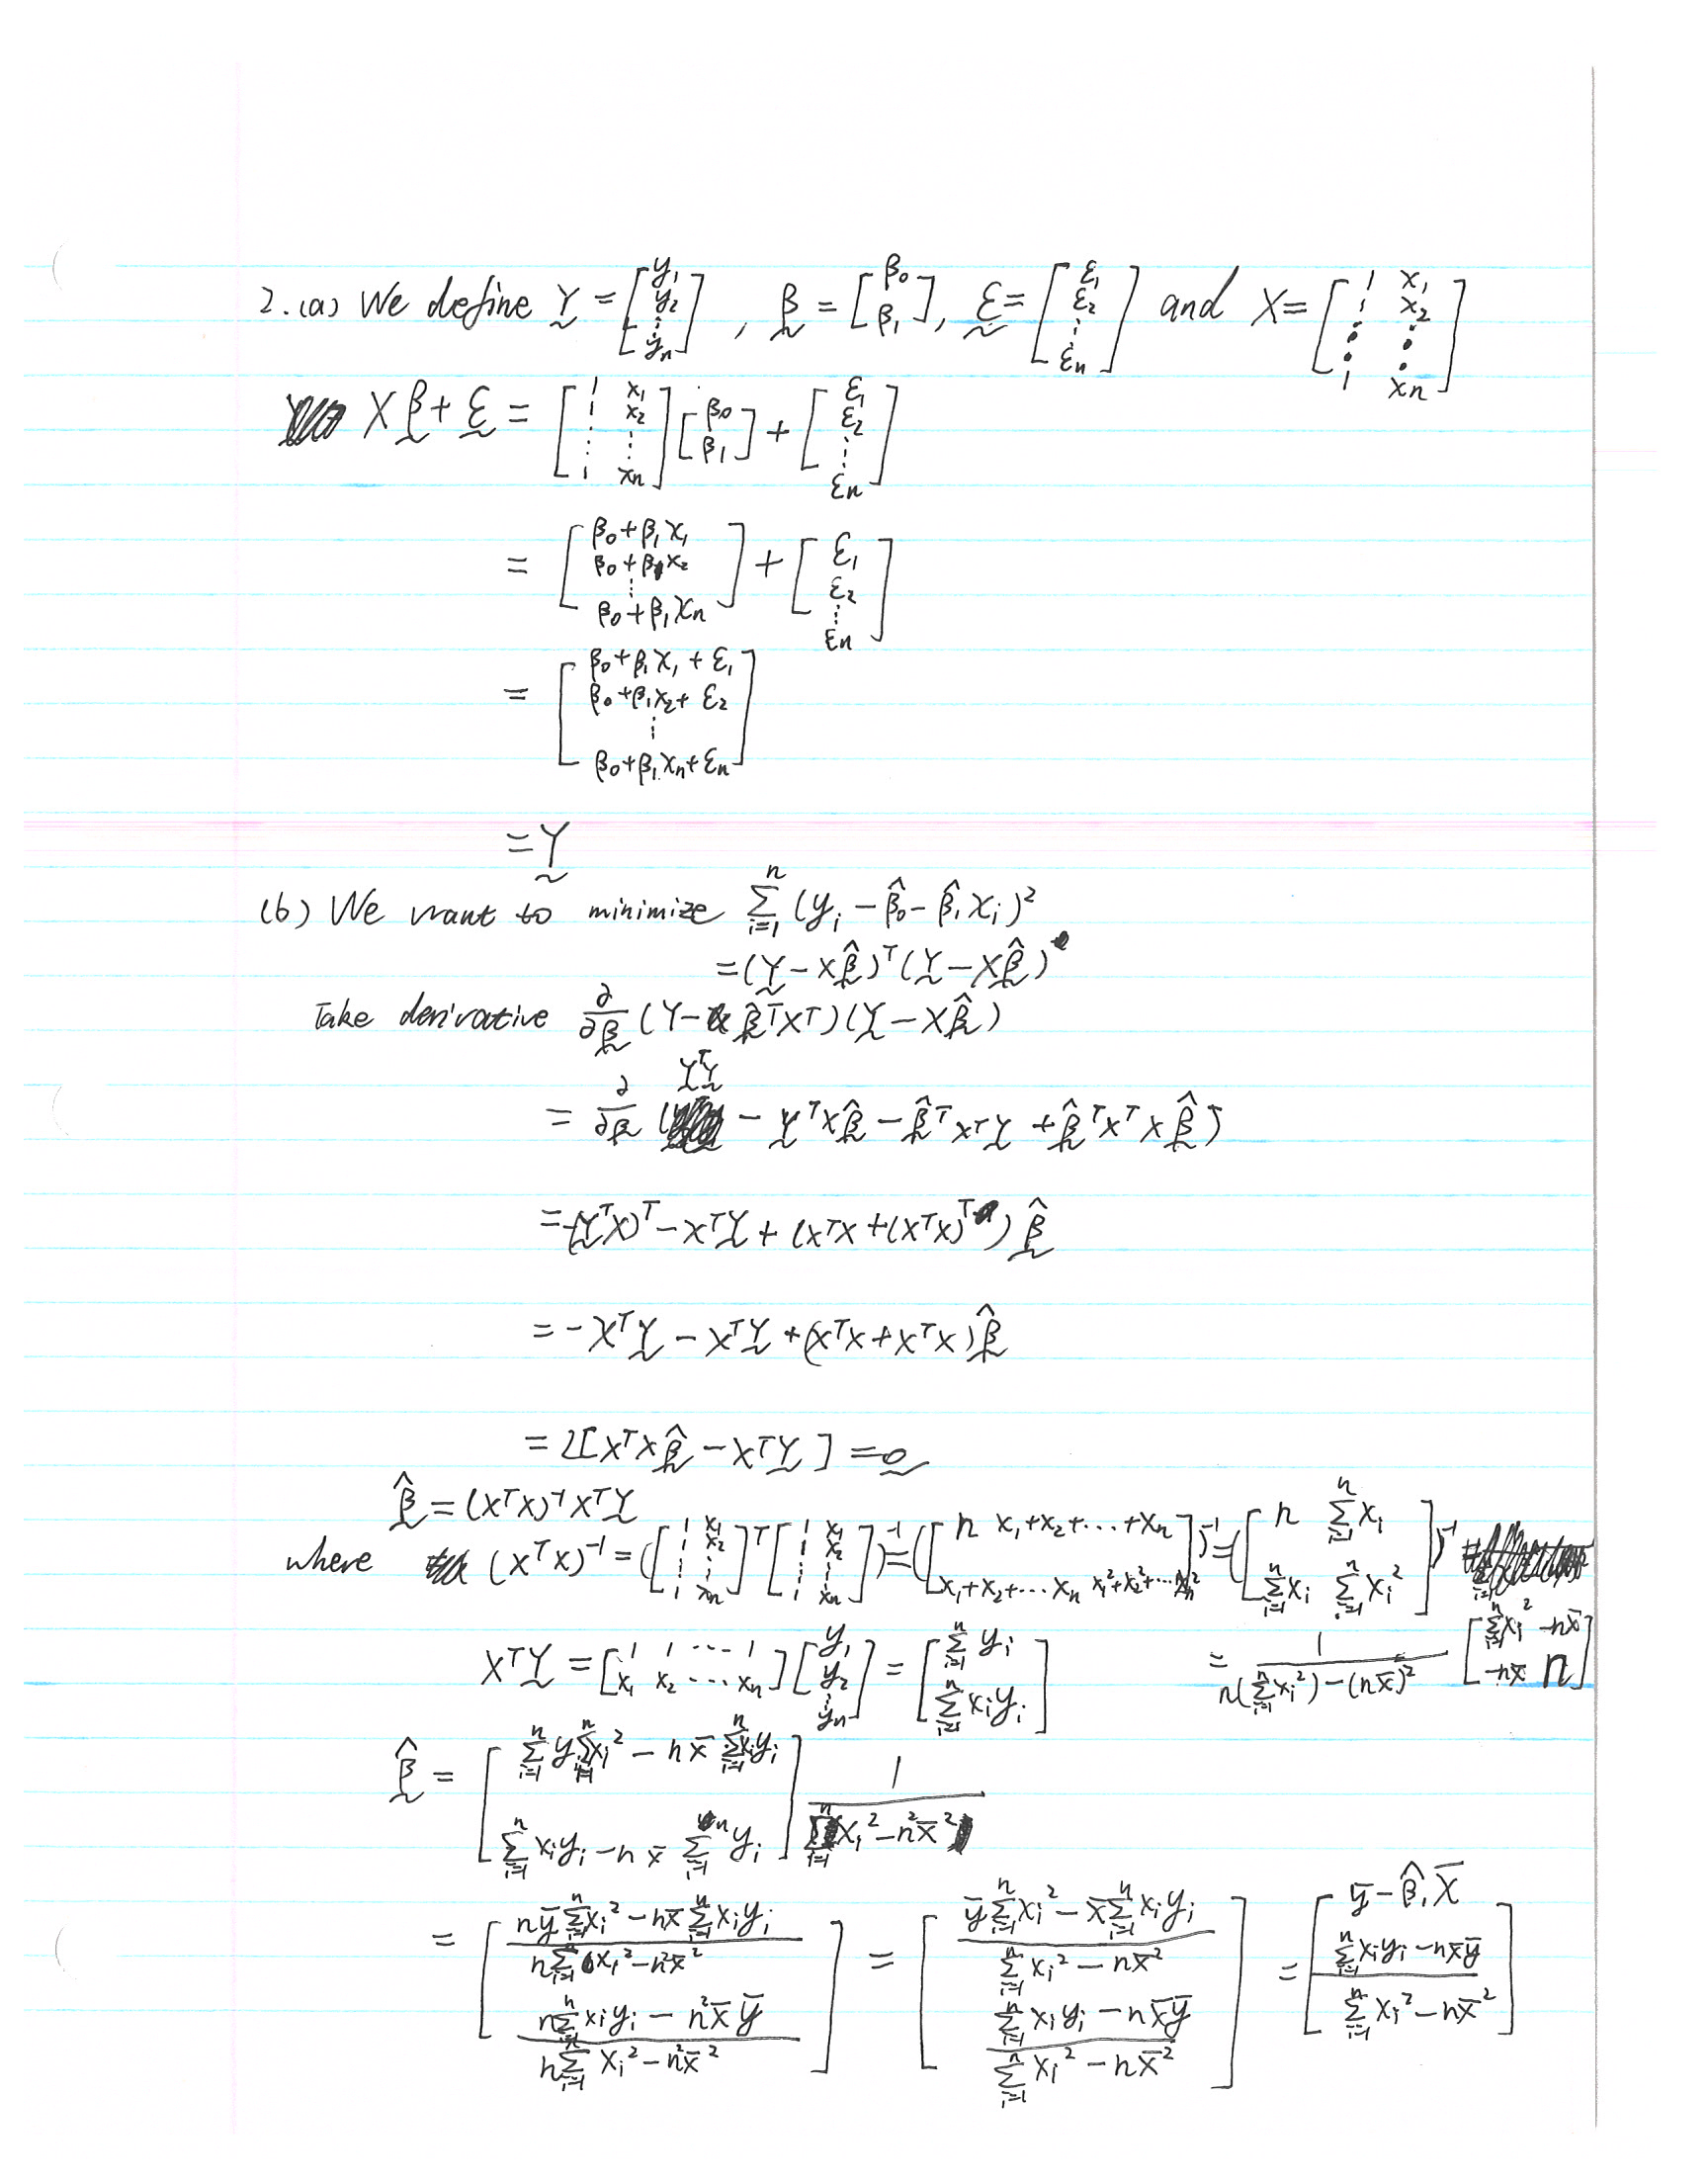 2. (a) We define Y = [y₁ y₂ ⋮ yₙ], β = [β₀ β₁], ε = [ε₁ ε₂ ⋮ εₙ] and X = [1 x₁; 1 x₂; ⋮ ⋮; 1 xₙ]
Xβ + ε = [1 x₁; 1 x₂; ⋮ ⋮; 1 xₙ] [β₀ β₁] + [ε₁ ε₂ ⋮ εₙ]
= [β₀+β₁x₁; β₀+β₁x₂; ⋮; β₀+β₁xₙ] + [ε₁ ε₂ ⋮ εₙ]
= [β₀+β₁x₁+ε₁; β₀+β₁x₂+ε₂; ⋮; β₀+β₁xₙ+εₙ]
= Y
(b) We want to minimize Σᵢ₌₁ⁿ (yᵢ − β̂₀ − β̂₁xᵢ)²
= (Y − Xβ̂)ᵀ(Y − Xβ̂)
Take derivative ∂/∂β (Y − β̂ᵀXᵀ)(Y − Xβ̂)
= ∂/∂β (YᵀY − YᵀXβ̂ − β̂ᵀXᵀY + β̂ᵀXᵀXβ̂)
= −(YᵀX)ᵀ − XᵀY + (XᵀX + (XᵀX)ᵀ) β̂
= −XᵀY − XᵀY + (XᵀX + XᵀX)β̂
= 2[XᵀXβ̂ − XᵀY] = 0
β̂ = (XᵀX)⁻¹XᵀY
where (XᵀX)⁻¹ = ([1 x₁; 1 x₂; ⋮ ⋮; 1 xₙ]ᵀ [1 x₁; 1 x₂; ⋮ ⋮; 1 xₙ])⁻¹ = ([n x₁+x₂+...+xₙ; x₁+x₂+...xₙ x₁²+x₂²+...xₙ²])⁻¹ = ([n Σᵢ₌₁ⁿ xᵢ; Σᵢ₌₁ⁿ xᵢ Σᵢ₌₁ⁿ xᵢ²])⁻¹
XᵀY = [1 1 ... 1; x₁ x₂ ... xₙ] [y₁ y₂ ⋮ yₙ] = [Σᵢ₌₁ⁿ yᵢ; Σᵢ₌₁ⁿ xᵢyᵢ] = 1/(n(Σᵢ₌₁ⁿ xᵢ²) − (nx̄)²) [Σᵢ₌₁ⁿ xᵢ² −nx̄; −nx̄ n]
β̂ = [Σᵢ₌₁ⁿ y Σᵢ₌₁ⁿ xᵢ² − nx̄ Σᵢ₌₁ⁿ xᵢyᵢ; Σᵢ₌₁ⁿ xᵢyᵢ − nx̄ Σᵢ₌₁ⁿ yᵢ] 1/(Σᵢ₌₁ⁿ xᵢ² − n²x̄²)
= [(nȳΣᵢ₌₁ⁿ xᵢ² − nx̄Σᵢ₌₁ⁿ xᵢyᵢ)/(nΣᵢ₌₁ⁿ xᵢ² − n²x̄²); (nΣᵢ₌₁ⁿ xᵢyᵢ − n²x̄ȳ)/(nΣᵢ₌₁ⁿ xᵢ² − n²x̄²)] = [(ȳΣᵢ₌₁ⁿ xᵢ² − x̄Σᵢ₌₁ⁿ xᵢyᵢ)/(Σᵢ₌₁ⁿ xᵢ² − nx̄²); (Σᵢ₌₁ⁿ xᵢyᵢ − nx̄ȳ)/(Σᵢ₌₁ⁿ xᵢ² − nx̄²)] = [ȳ − β̂₁x̄; (Σᵢ₌₁ⁿ xᵢyᵢ − nx̄ȳ)/(Σᵢ₌₁ⁿ xᵢ² − nx̄²)]